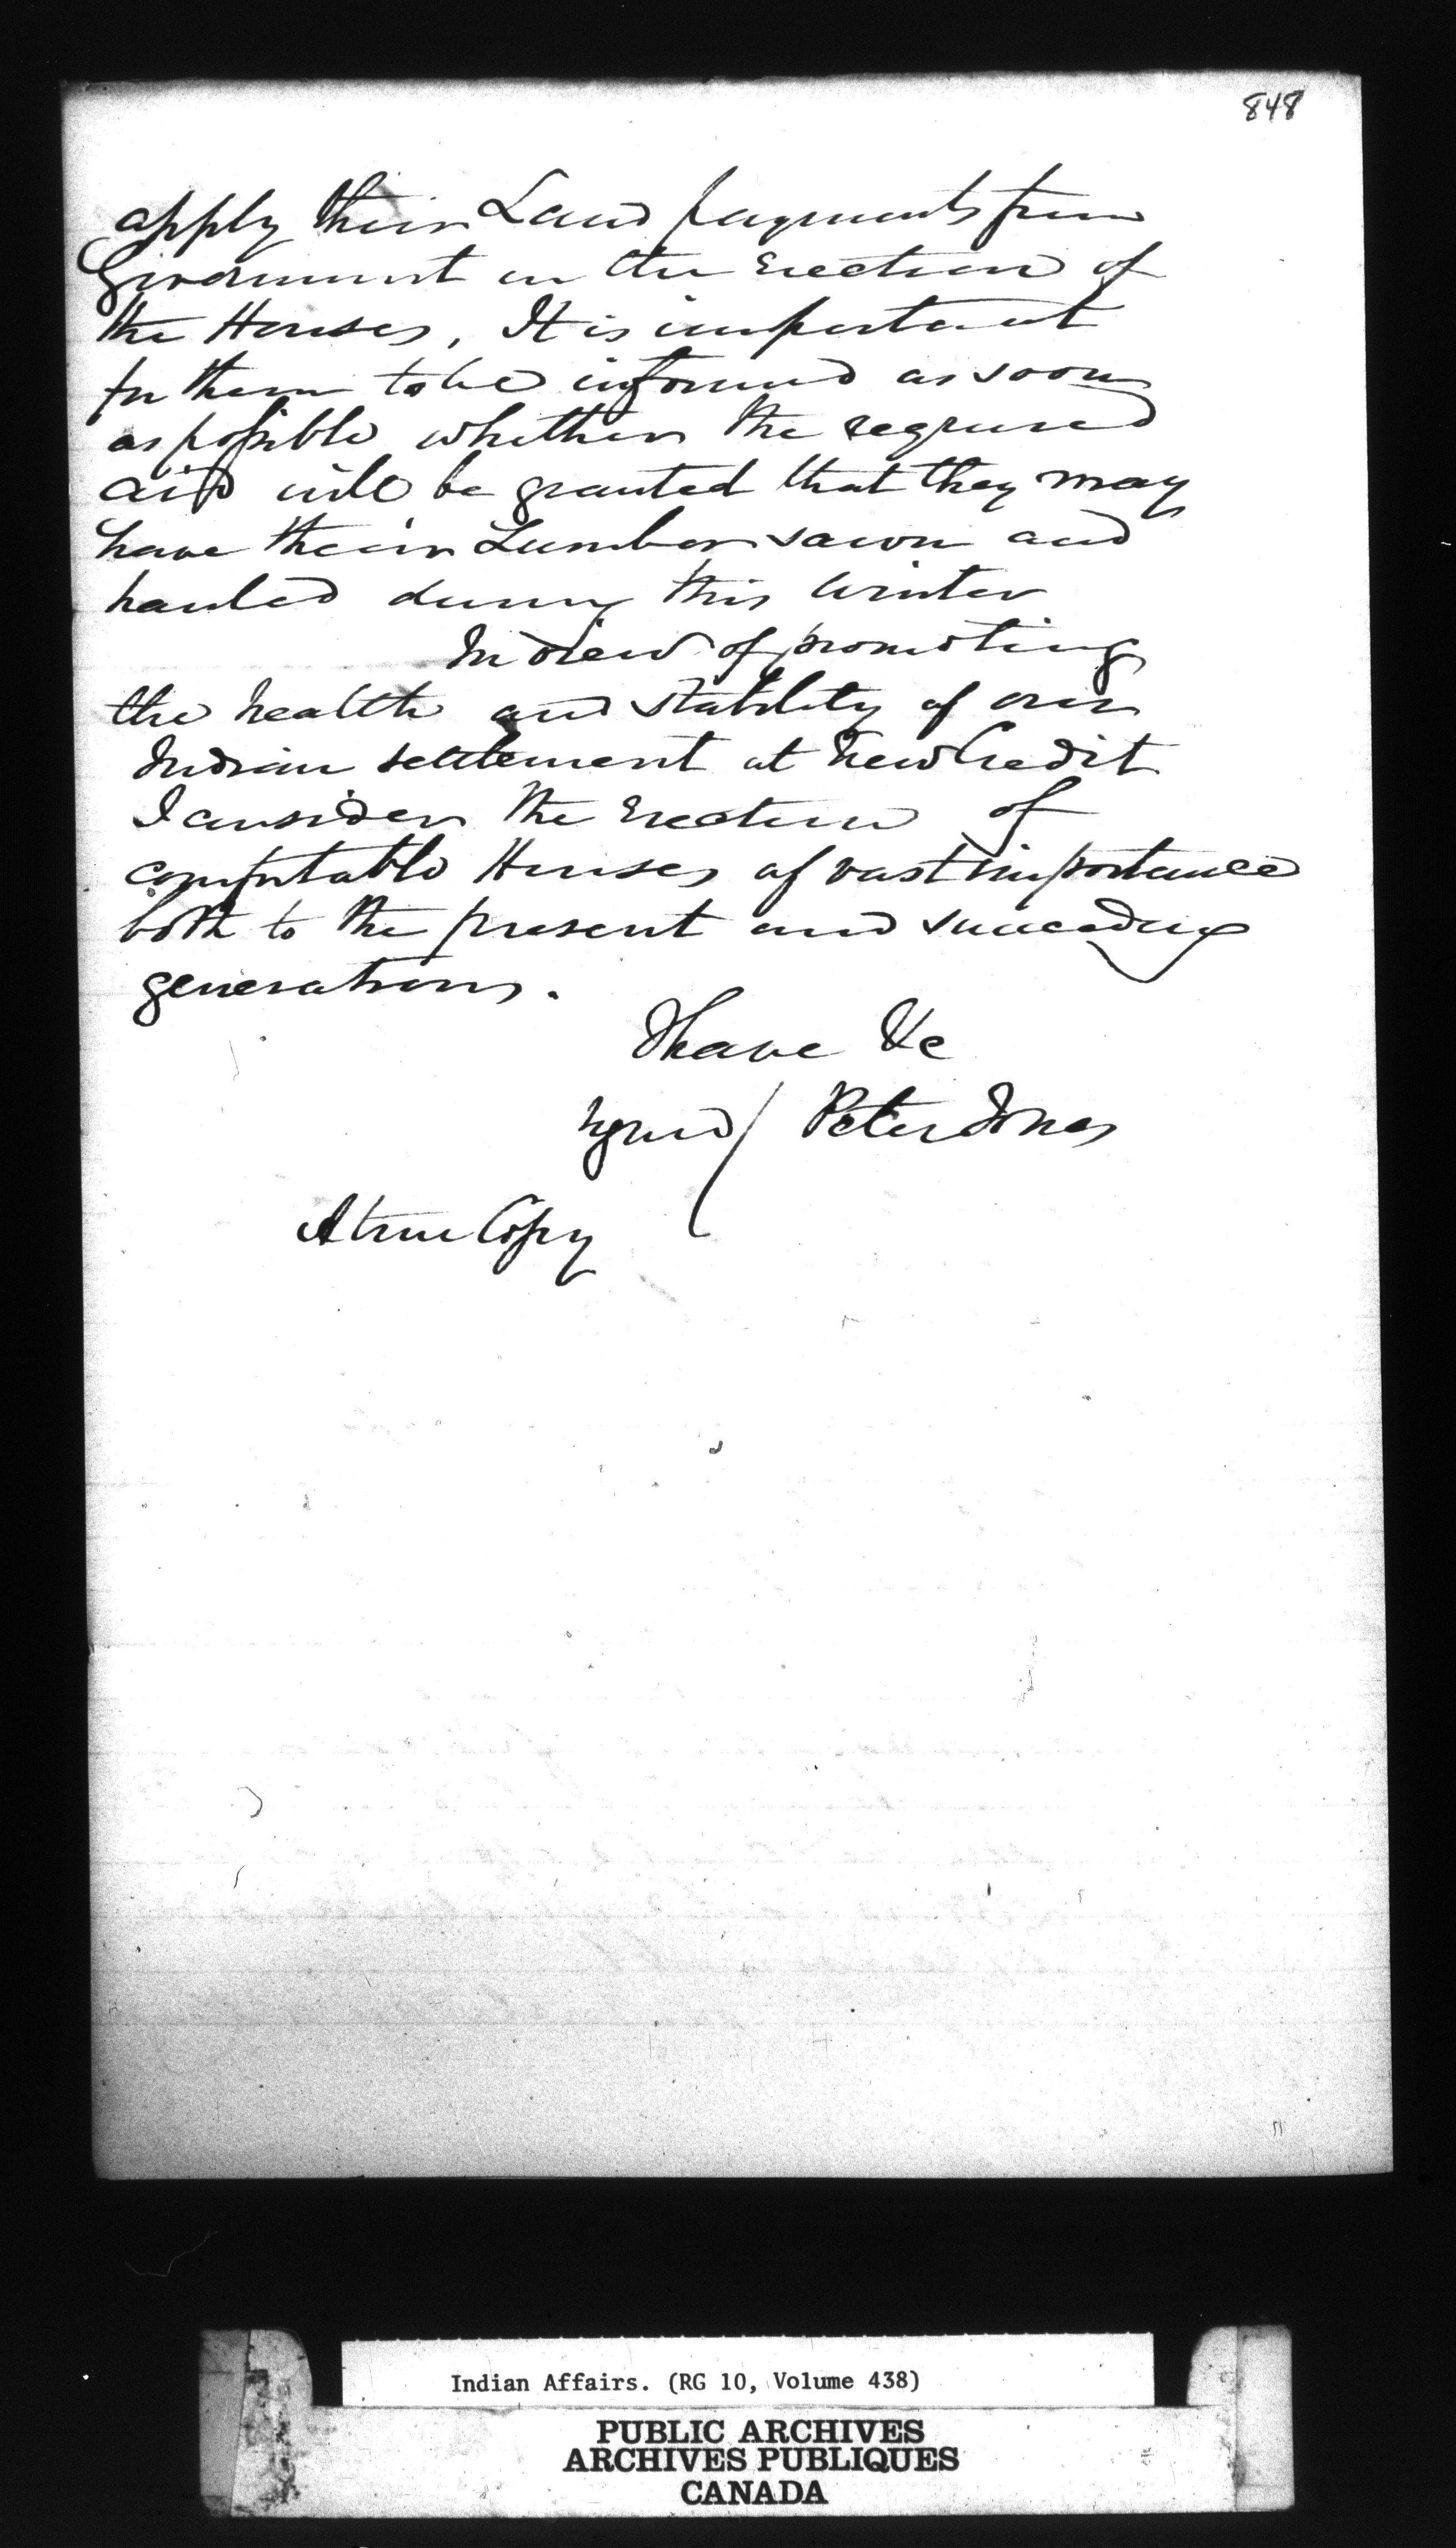 848
apply their Land payments from
Government in the Erection of
the Houses, It is important
for them to be informed as soon
as possible whether the required
aid will be granted that they may
have their Lumber sawn and
hauled during this Winter
In view of promoting
the health and stability of our
Indian settlement at New Credit
I consider the Erection of
comfortable Houses of vast importance
both to the present and succeeding
generations.
I have &c
Signed / Peter Jones
A true Copy
Indian Affairs. (RG 10, Volume 438)
PUBLIC ARCHIVES
ARCHIVES PUBLIQUES
CANADA